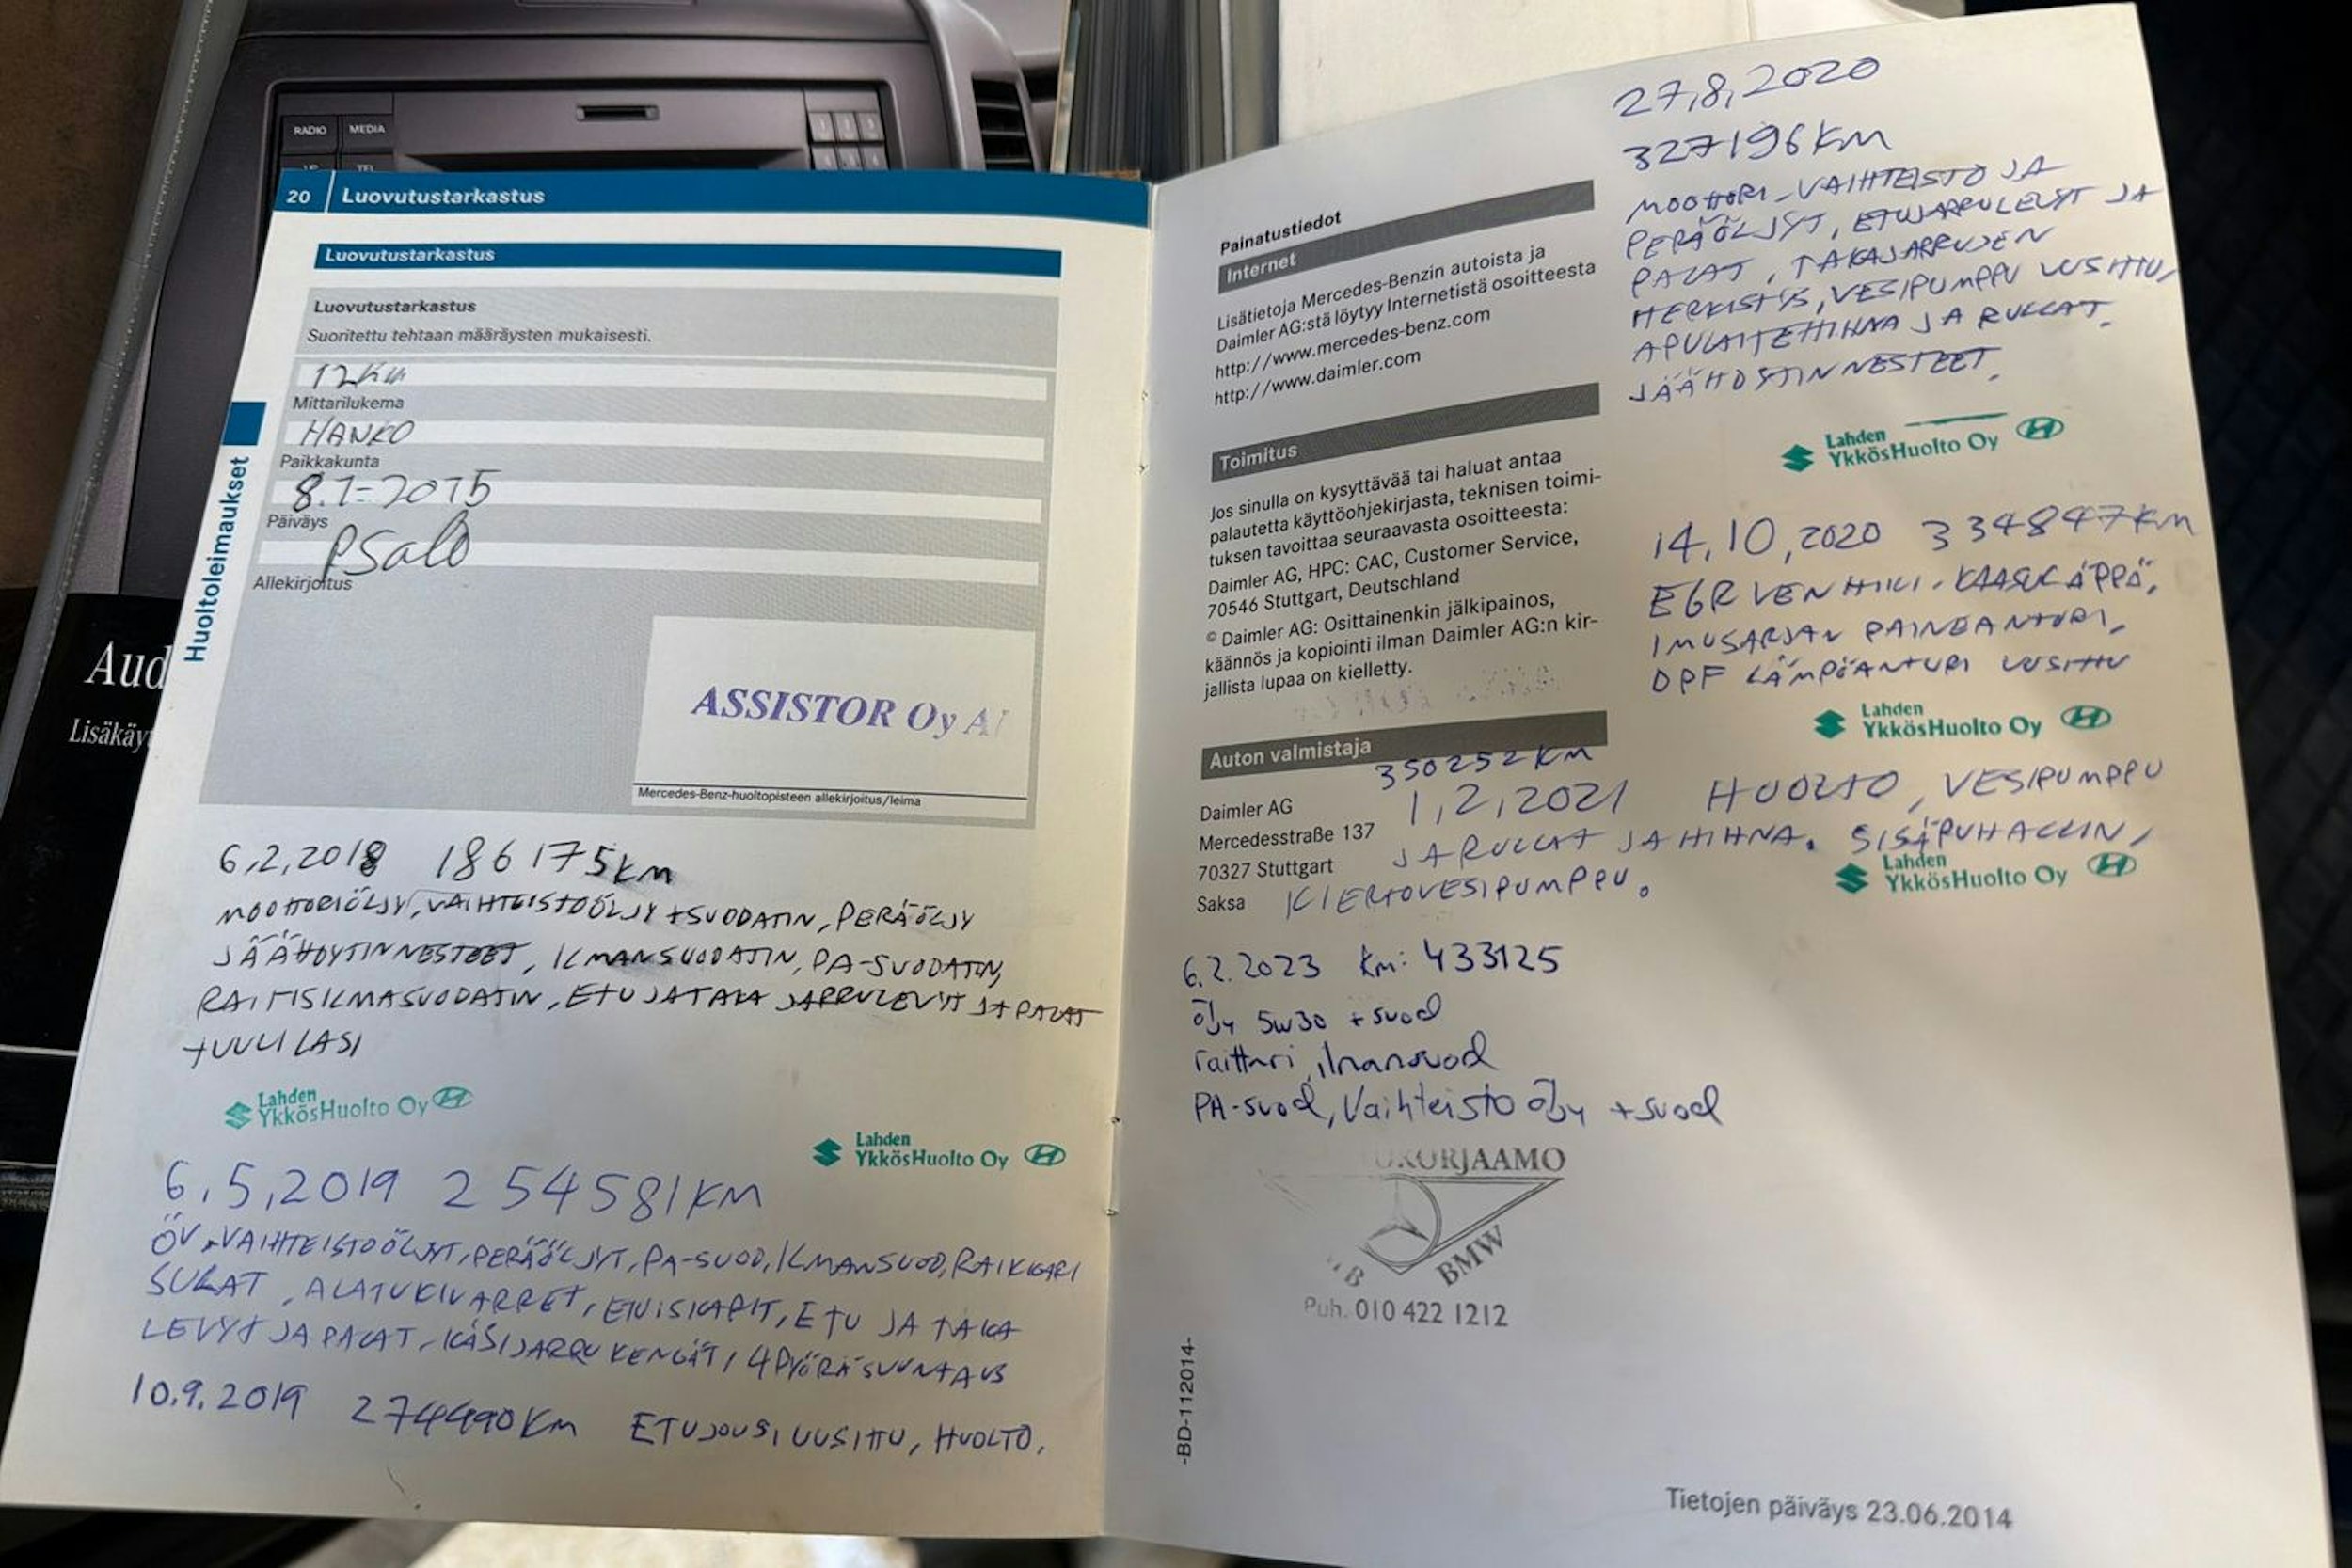 RADIO MEDIA
TEL
Aud
Lisäkäy
20 Luovutustarkastus
Luovutustarkastus
Luovutustarkastus
Suoritettu tehtaan määräysten mukaisesti.
12 km
Mittarilukema
HANKO
Paikkakunta
8.1-2015
Päiväys
PSalo
Allekirjoitus
Huoltoleimaukset
ASSISTOR Oy A
Mercedes-Benz-huoltopisteen allekirjoitus/leima
6,2,2018 186175km
MOOTTORIÖLJY, VAIHTEISTOÖLJY +SUODATIN, PERÄÖLJY
JÄÄHDYTINNESTEET, ILMANSUODATIN, PA-SUODATIN,
RAITISILMASUODATIN, ETU JA TAKA JARRULEVYT JA PALAT
TUULILASI
Lahden
YkkösHuolto Oy
Lahden
YkkösHuolto Oy
6,5,2019 254581KM
ÖV, VAIHTEISTOÖLJYT, PERÄÖLJYT, PA-SUOD, ILMANSUOD, RAIKKARI
SULAT, ALATUKIVARRET, ETUISKARIT, ETU JA TAKA
LEVYT JA PALAT, KÄSIJARRU KENGÄT, 4PYÖRÄSUUNTAUS
10.9.2019 274490Km ETUJOUSI UUSITTU, HUOLTO,
Painatustiedot
Internet
Lisätietoja Mercedes-Benzin autoista ja
Daimler AG:stä löytyy Internetistä osoitteesta
http://www.mercedes-benz.com
http://www.daimler.com
Toimitus
Jos sinulla on kysyttävää tai haluat antaa
palautetta käyttöohjekirjasta, teknisen toimi-
tuksen tavoittaa seuraavasta osoitteesta:
Daimler AG, HPC: CAC, Customer Service,
70546 Stuttgart, Deutschland
© Daimler AG: Osittainenkin jälkipainos,
käännös ja kopiointi ilman Daimler AG:n kir-
jallista lupaa on kielletty.
Auton valmistaja
Daimler AG
Mercedesstraße 137
70327 Stuttgart
Saksa
27,8,2020
327196KM
MOOTTORI-VAIHTEISTO JA
PERÄÖLJYT, ETUJARRULEVYT JA
PALAT, TAKAJARRUJEN
HERKISTYS, VESIPUMPPU UUSITTU,
APULAITEHIHNA JA RULLAT.
JÄÄHDYTINNESTEET.
Lahden
YkkösHuolto Oy
14,10,2020 334847km
EGR VENTTIILI-KAASULÄPPÄ,
IMUSARJAN PAINEANTURI,
DPF LÄMPÖANTURI UUSITTU
Lahden
YkkösHuolto Oy
350252KM
1,2,2021 HUOLTO, VESIPUMPPU
JA RULLAT JA HIHNA. SISÄPUHALLIN,
KIERTOVESIPUMPPU.
Lahden
YkkösHuolto Oy
6.2.2023 km: 433125
öljy 5w30 +suod
raittari, ilmansuod
PA-suod, Vaihteisto öljy +suod
KORJAAMO
MB
BMW
Puh. 010 422 1212
-BD-112014-
Tietojen päiväys 23.06.2014